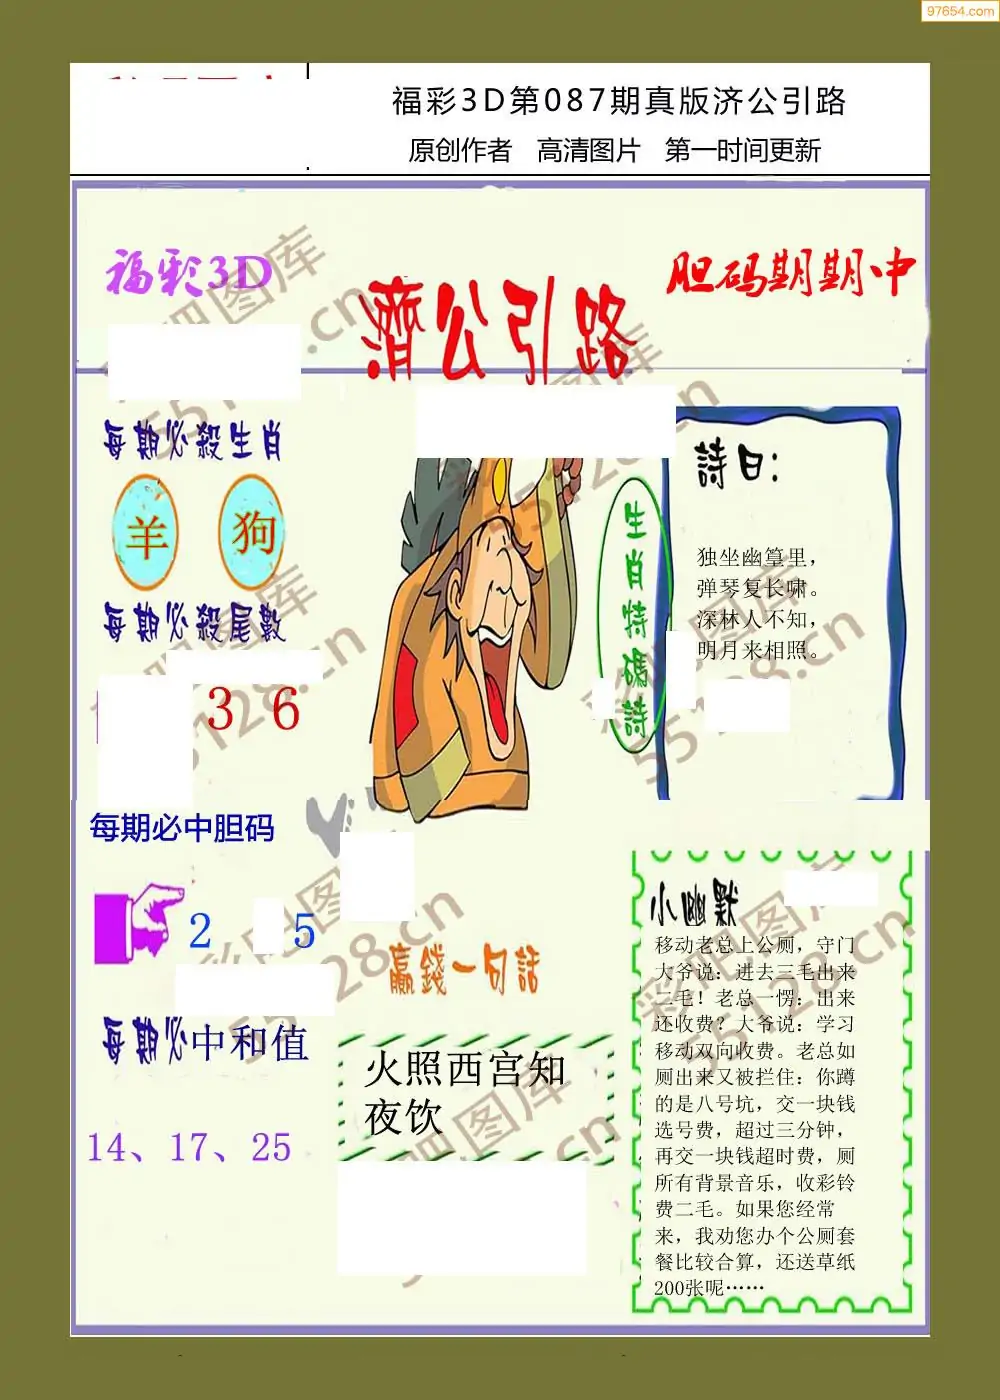 97654.com
福彩3D第087期真版济公引路
原创作者 高清图片 第一时间更新
福彩3D
濟公引路
胆码期期中
每期必殺生肖
羊 狗
每期必殺尾數
3 6
每期必中胆码
2 5
每期必中和值
14、17、25
生肖特碼詩
詩曰:
独坐幽篁里，
弹琴复长啸。
深林人不知，
明月来相照。
贏錢一句話
火照西宫知
夜饮
小幽默
移动老总上公厕，守门
大爷说：进去三毛出来
二毛！老总一愣：出来
还收费？大爷说：学习
移动双向收费。老总如
厕出来又被拦住：你蹲
的是八号坑，交一块钱
选号费，超过三分钟，
再交一块钱超时费，厕
所有背景音乐，收彩铃
费二毛。如果您经常
来，我劝您办个公厕套
餐比较合算，还送草纸
200张呢……
彩吧图库
55128.cn